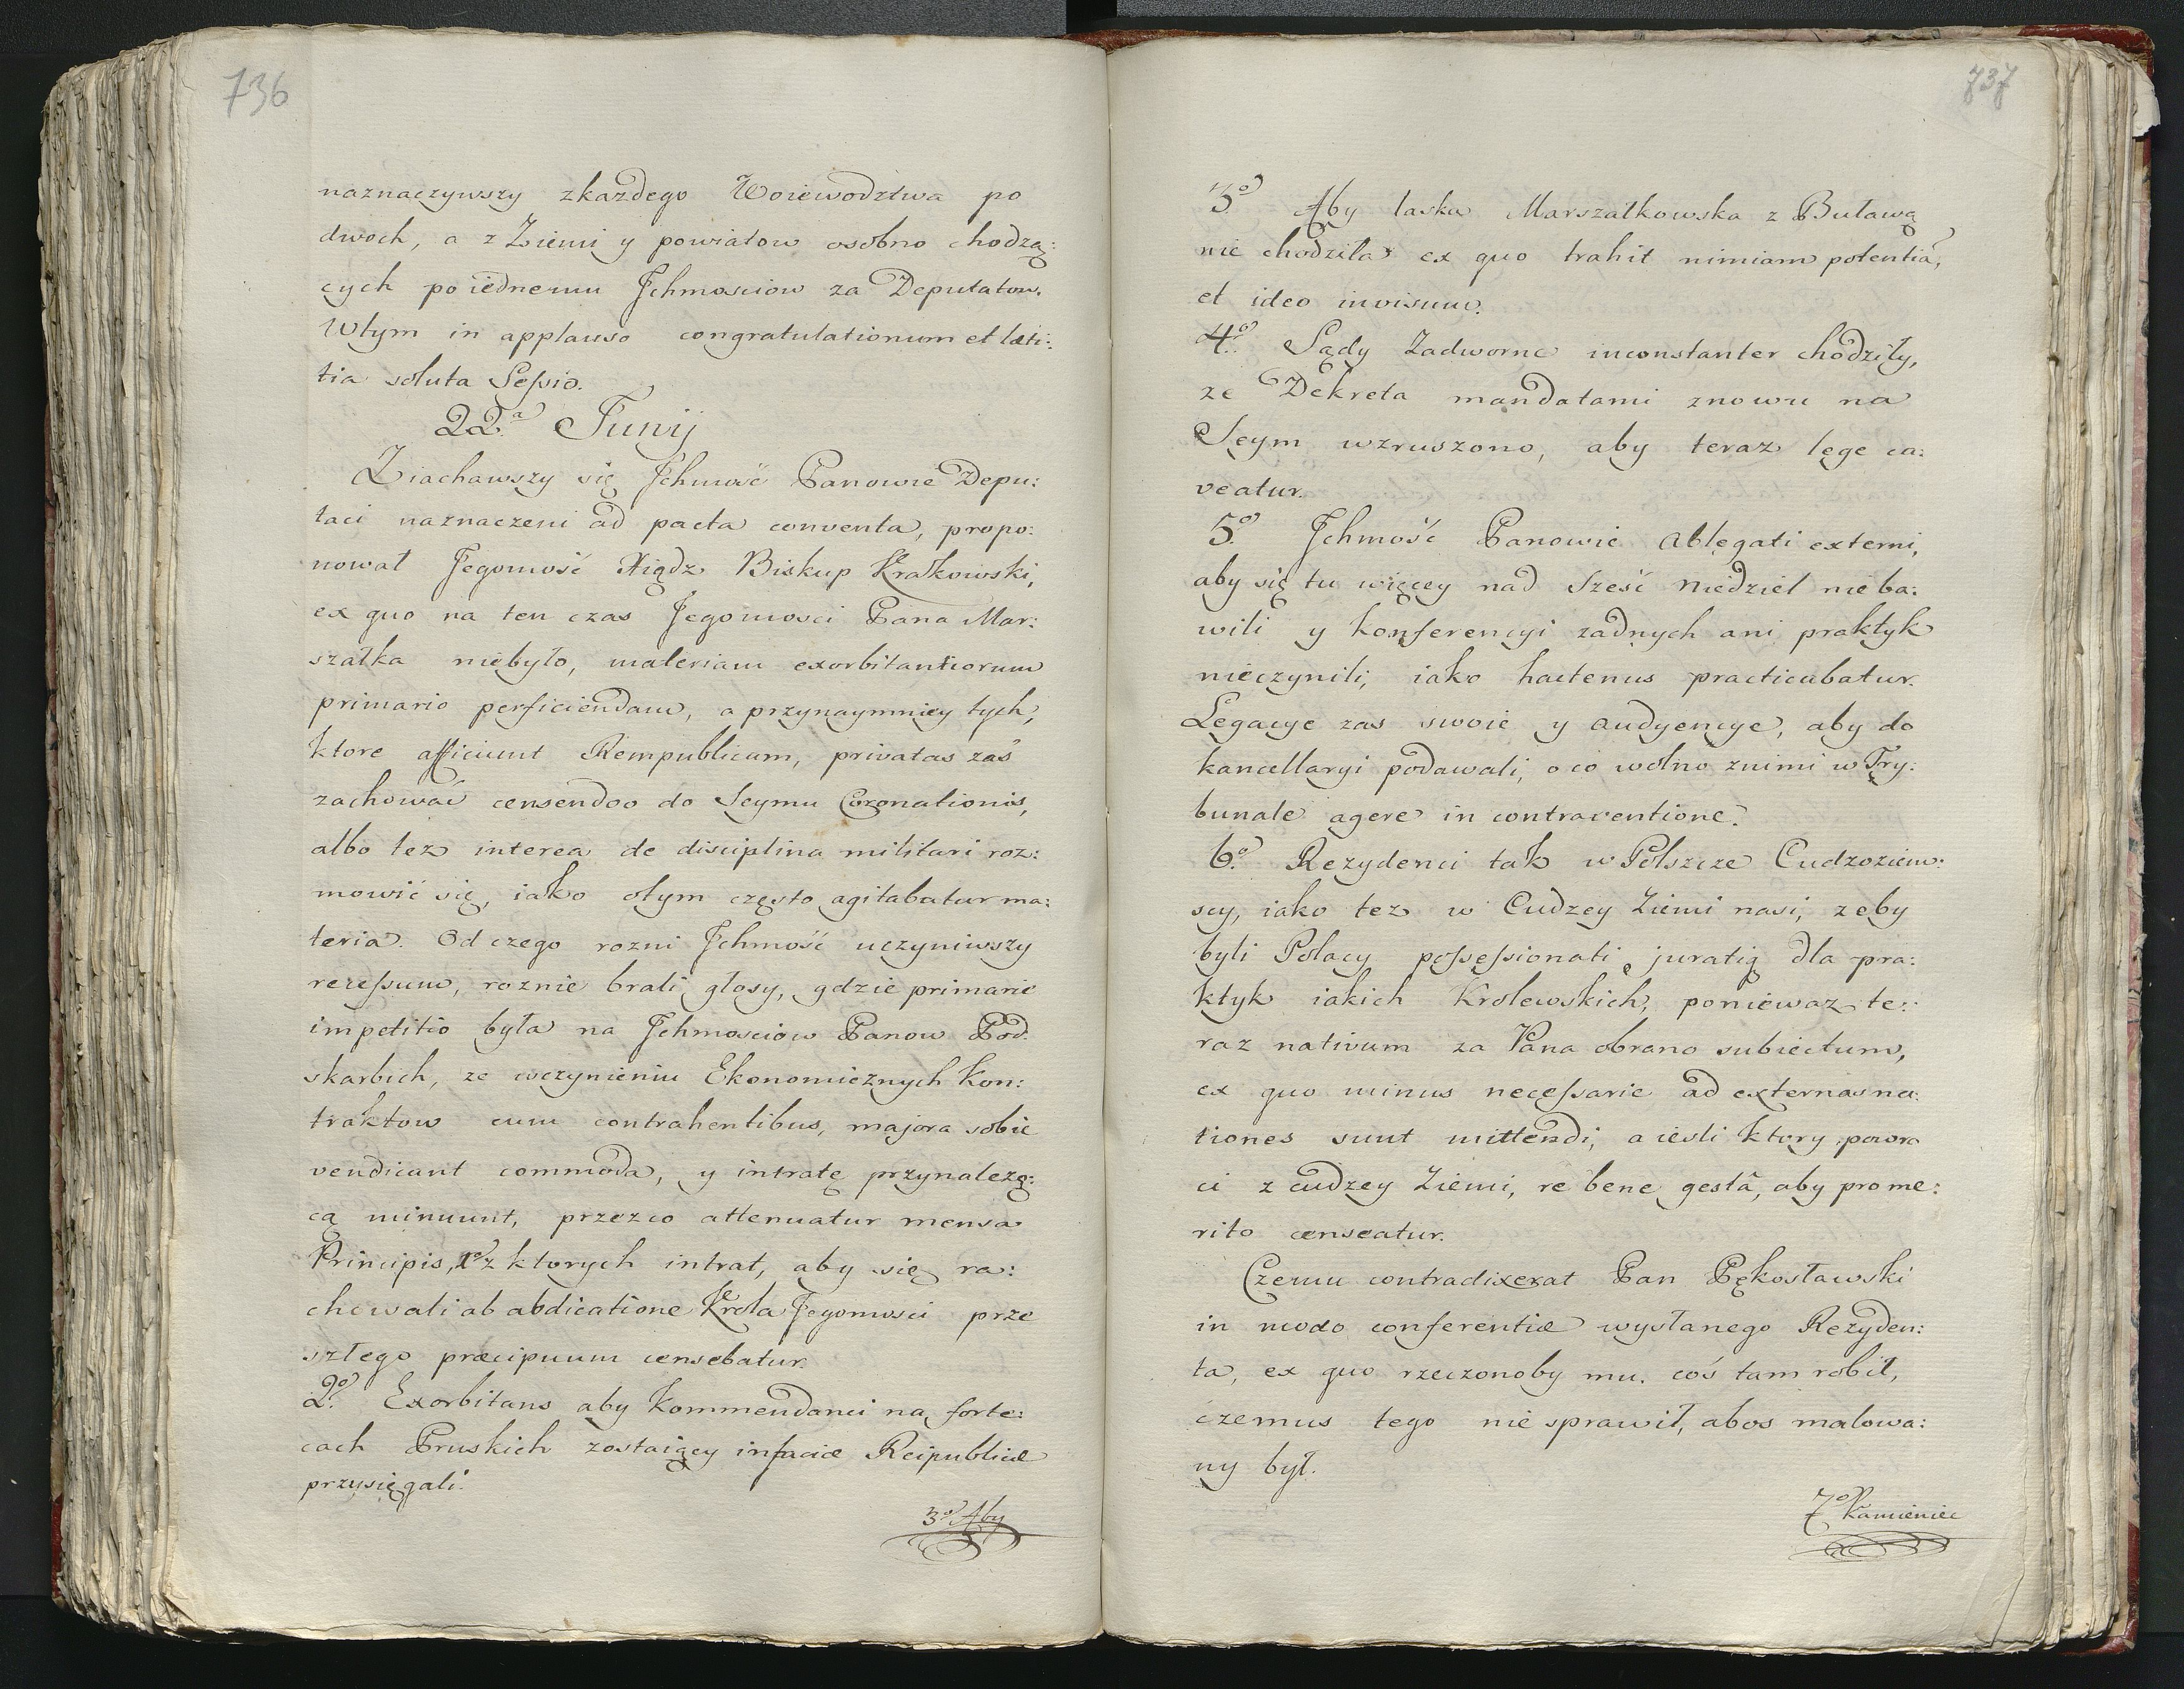 736
naznaczywszy zkażdego Woiewodztwa po
dwoch, a z Ziemi y powiatow osobno chodzą:
cych po iednemu Jchmosciow za Deputatow.
Wtym in applauso congratulationum et læti:
tia soluta Sessio.
22.a Junij
Ziachawszy się Jchmość Panowie Depu:
taci naznaczeni ad pacta conventa, propo:
nował Jegomość Xiądz Biskup Krakowski,
ex quo na ten czas Jegomosci Pana Mar:
szałka niebyło, materiam exorbitantiorum
primario perficiendam, a przynaymniey tych,
ktore afficiunt Rempublicam, privatas zaś
zachować censendo do Seymu Coronationis,
albo tez interea de disciplina militari roz:
mowić się, iako otym często agitabatur ma:
teria. Od czego rozni Jchmość uczyniwszy
recessum, roznie brali głosy, gdzie primarie
impetitio była na Jchmosciow Panow Pod:
skarbich, ze wczynieniu Ekonomicznych Kon:
traktow cum contrahentibus, majora sobie
vendicant commoda, y intratę przynalezą:
cą minuunt, przezco attenuatur mensa
Principis, 1o z ktorych intrat, aby się ra:
chowali ab abdicatione Krola Jegomosci prze
szłego præcipuum censebatur.
2o. Exorbitans aby Kommendanci na forte:
cach Pruskich zostaiący in facie Reipublicæ
przysięgali.
3o Aby
737
3o. Aby laska Marszałkowska z Buławą
nie chodziła ex quo trahit nimiam potentiã,
et ideo invisum.
4o. Sądy Zadworne inconstanter chodziły,
ze Dekreta mandatami znowu na
Seym wzruszono, aby teraz lege ca:
veatur.
5o. Jchmość Panowie Ablegati externi,
aby się tu więcey nad sześć niedziel nie ba:
wili y konferencyi zadnych ani praktyk
nieczynili, iako hactenus practicabatur.
Legacye zas swoie y audyencye, aby do
kancellaryi podawali, o co wolno znimi w Try:
bunale agere in contraventione.
6o. Rezydenci tak w Polszcze Cudzoziem:
scy, iako tez w Cudzey Ziemi nasi, zeby
byli Polacy possessionati, juratię dla pra:
ktyk iakich Krolewskich, poniewaz te:
raz nativum za Pana obrano subiectum,
ex quo minus necessarie ad externas na:
tiones sunt mittendi, a iesli ktory powra
ci z cudzey Ziemi, re bene gestâ, aby pro me:
rito censeatur.
Czemu contradixerat Pan Pękosławski
in modo conferentiæ wysłanego Rezyden:
ta, ex quo rzeczonoby mu. coś tam robił,
czemus tego nie sprawił, abos malowa:
ny był.
7o Kamieniec